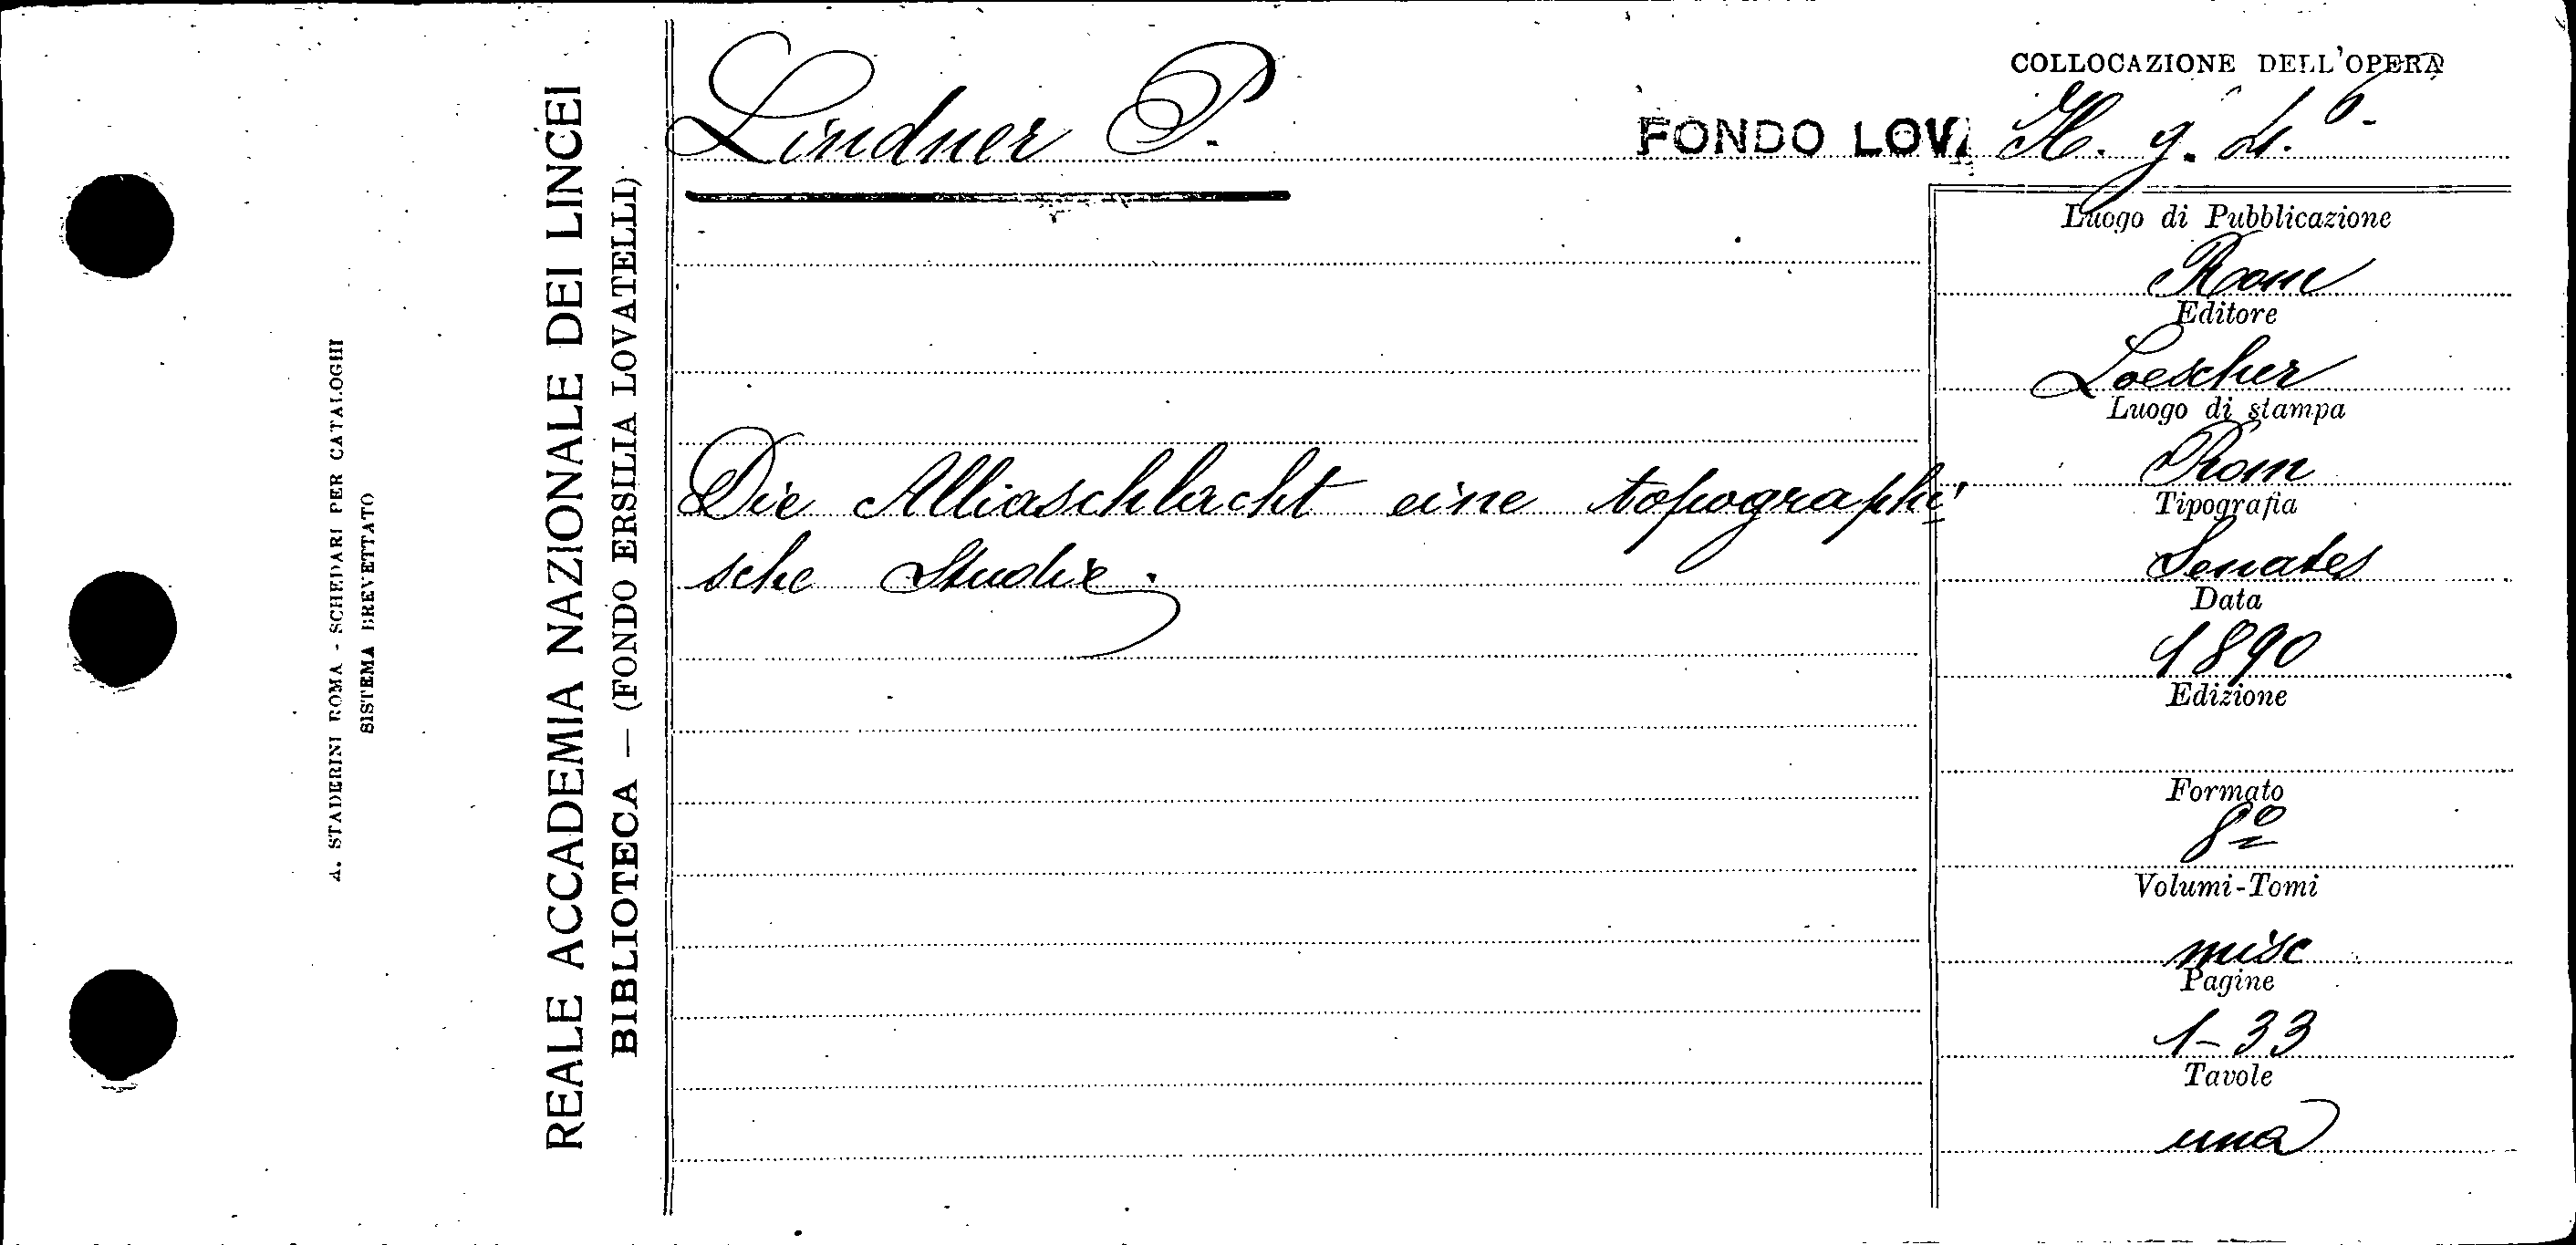 A. STADERINI ROMA - SCHEDARI PER CATALOGHI
SISTEMA BREVETTATO
REALE ACCADEMIA NAZIONALE DEI LINCEI
BIBLIOTECA — (FONDO ERSILIA LOVATELLI)
Lindner P.
FONDO LOV
COLLOCAZIONE DELL'OPERA
H. g.
Die Alliaschlacht eine topographi
sche Studie.
Luogo di Pubblicazione
Rom
Editore
Loescher
Luogo di stampa
Rom
Tipografia
Senates
Data
1890
Edizione
Formato
8º
Volumi-Tomi
misc
Pagine
1-33
Tavole
una